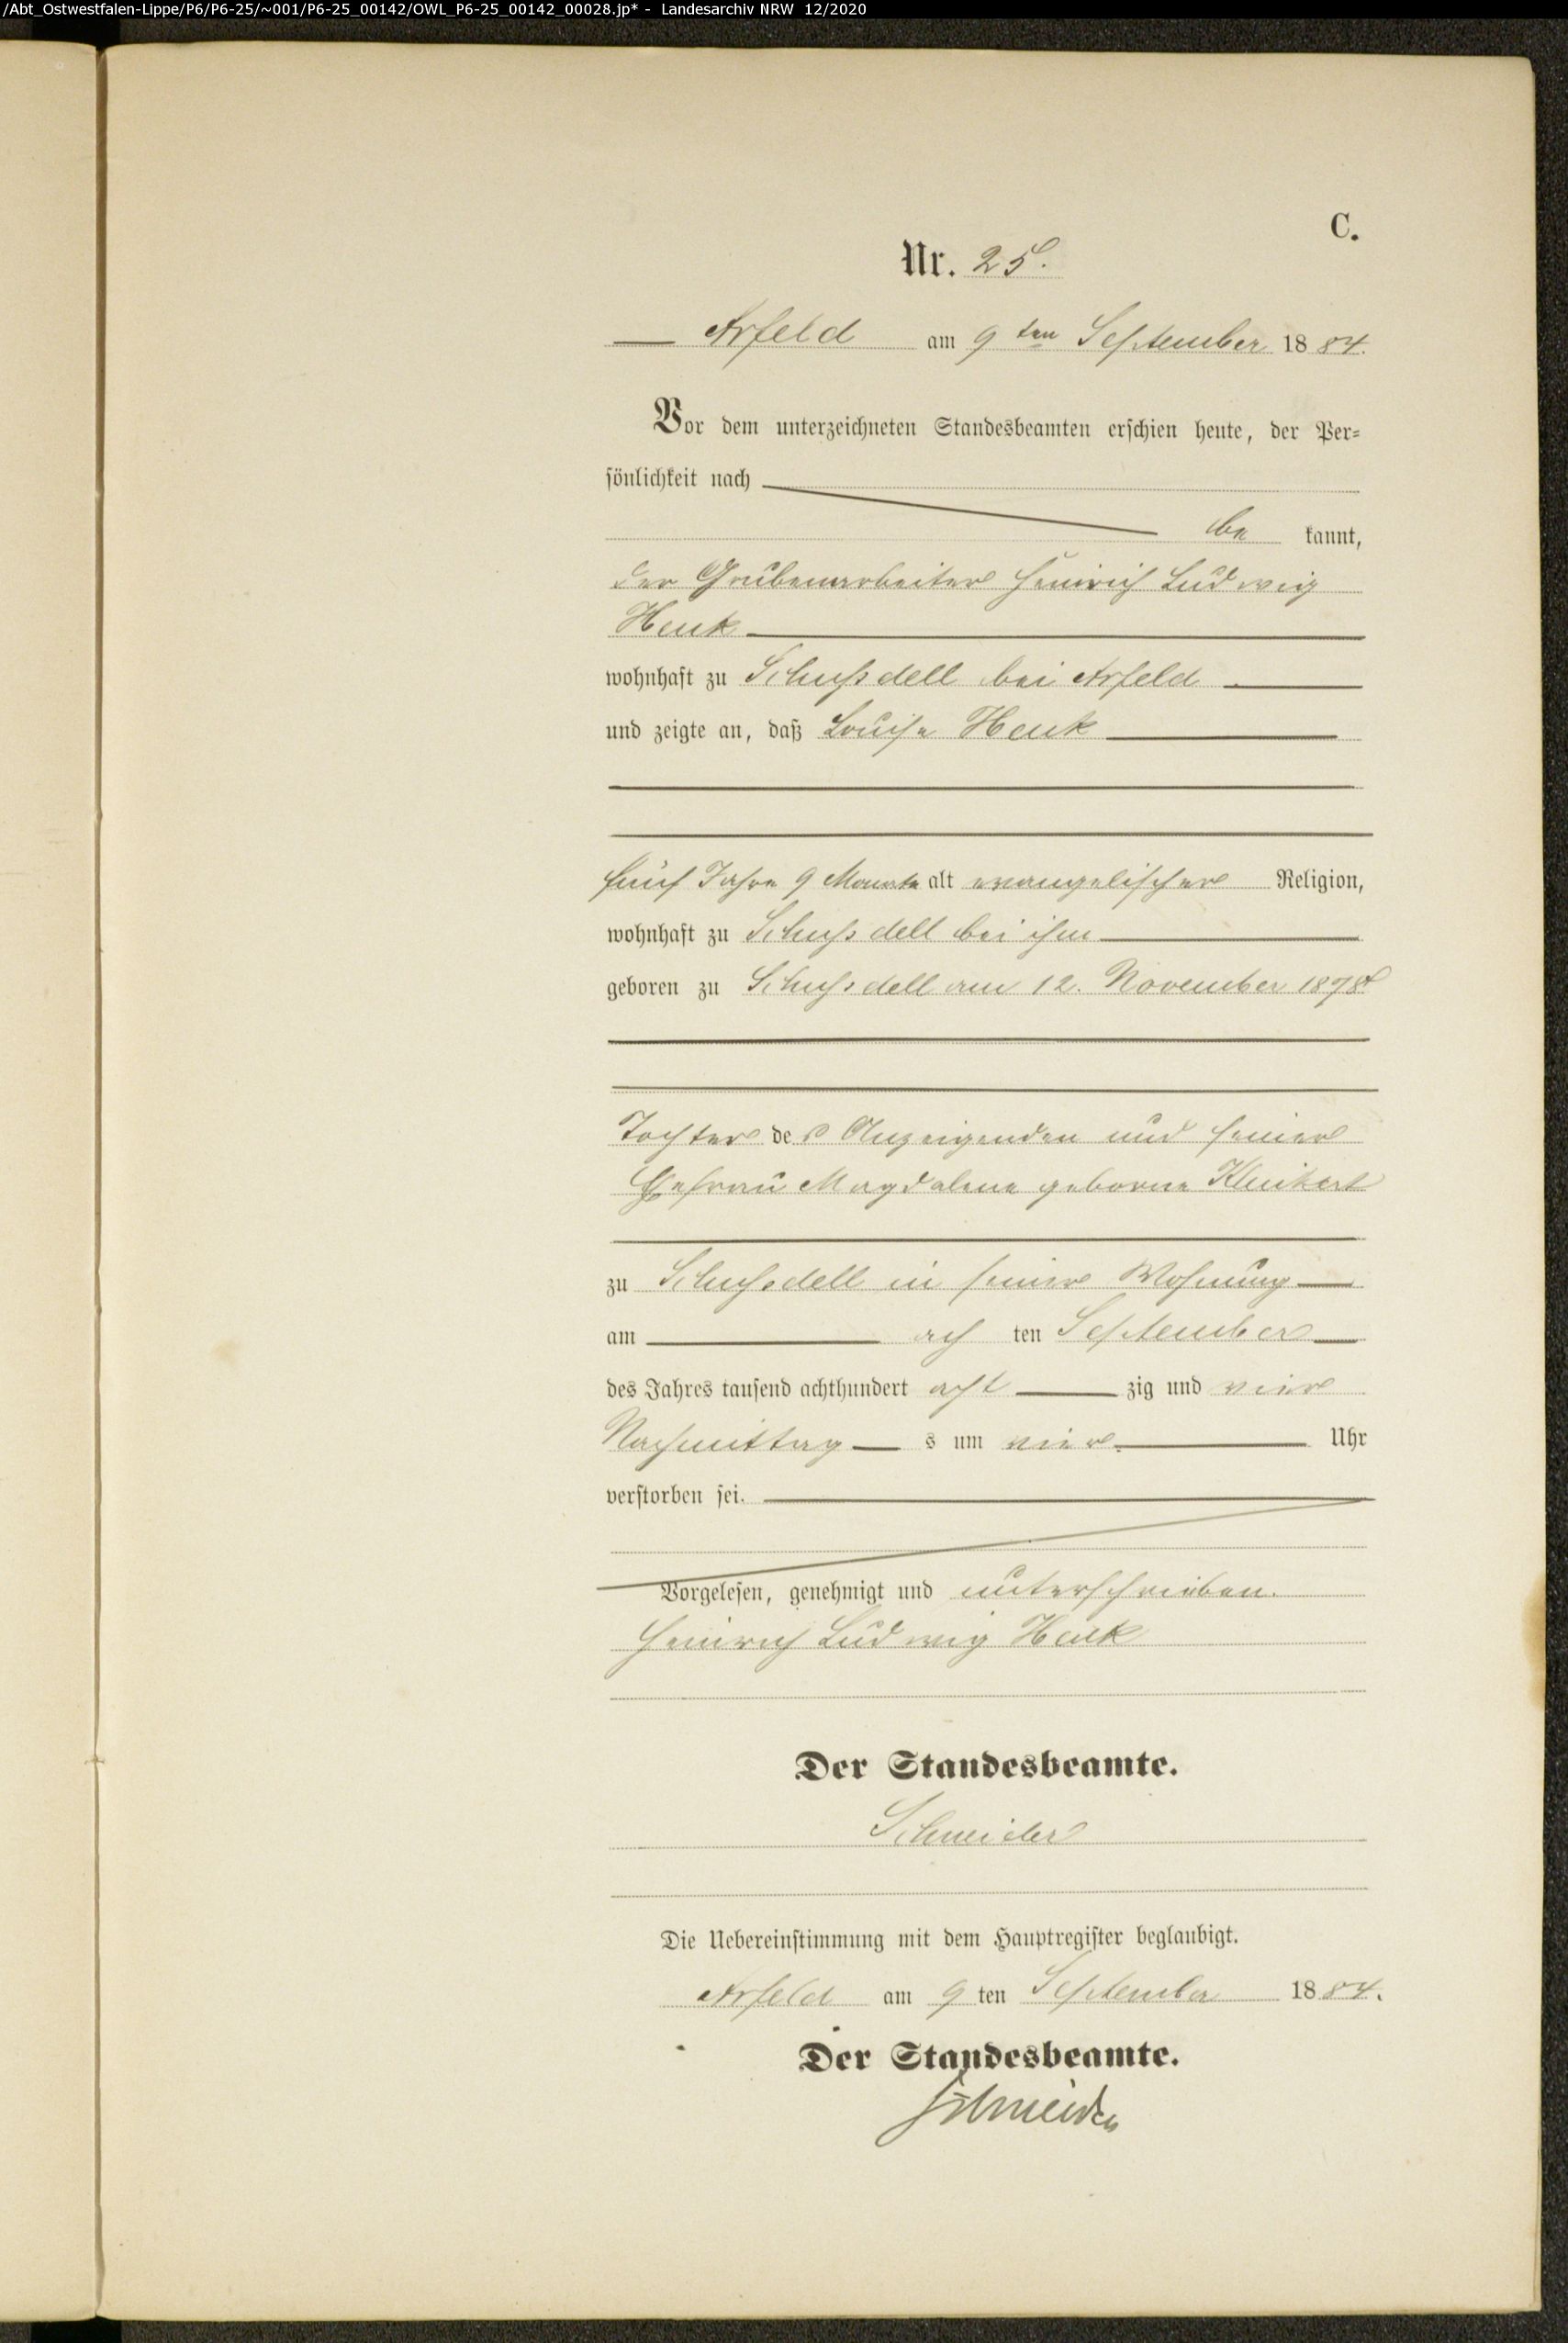 /Abt_Ostwestfalen-Lippe/P6/P6-25/~001/P6-25_00142/OWL_P6-25_00142_00028.jp* - Landesarchiv NRW 12/2020
C.
Nr. 25.
Arfeld am 9ten September 1884.
Vor dem unterzeichneten Standesbeamten erschien heute, der Per-
sönlichkeit nach
be kannt,
der Grubenarbeiter Heinrich Ludwig
Henk
wohnhaft zu Schußdell bei Arfeld
und zeigte an, daß Louise Henk
fünf Jahre 9 Monate alt evangelischer Religion,
wohnhaft zu Schußdell bei ihm
geboren zu Schußdell am 12. November 1878
Tochter des Anzeigenden und seiner
Ehefrau Magdalene geborne
zu Schußdell in seiner Wohnung
am ach ten September
des Jahres tausend achthundert acht zig und vier
Nachmittag s um vier Uhr
verstorben sei.
Vorgelesen, genehmigt und unterschrieben.
Heinrich Ludwig Henk
Der Standesbeamte.
Schneider
Die Uebereinstimmung mit dem Hauptregister beglaubigt.
Arfeld am 9 ten September 1884.
Der Standesbeamte.
Schneider